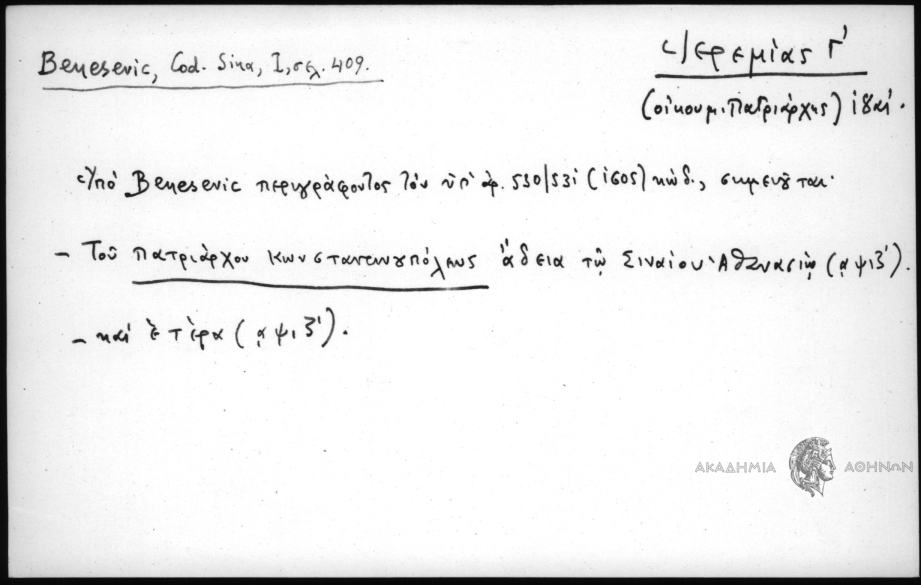 Benesevic, Cod. Sina, I, σελ. 409.
Ἱερεμίας Γ΄
(οἰκουμ. Πατριάρχης) ιη΄ αἰ.
Ὑπό Benesevic περιγράφοντος τόν ὑπ' ἀρ. 530/531 (1605) κώδ., σημειοῦται·
- Τοῦ Πατριάρχου Κωνσταντινουπόλεως ἄδεια τῷ Σιναίου Ἀθανασίῳ (͵αψιζ΄).
- καί ἑτέρα (͵αψιζ΄).
ΑΚΑΔΗΜΙΑ ΑΘΗΝΩΝ